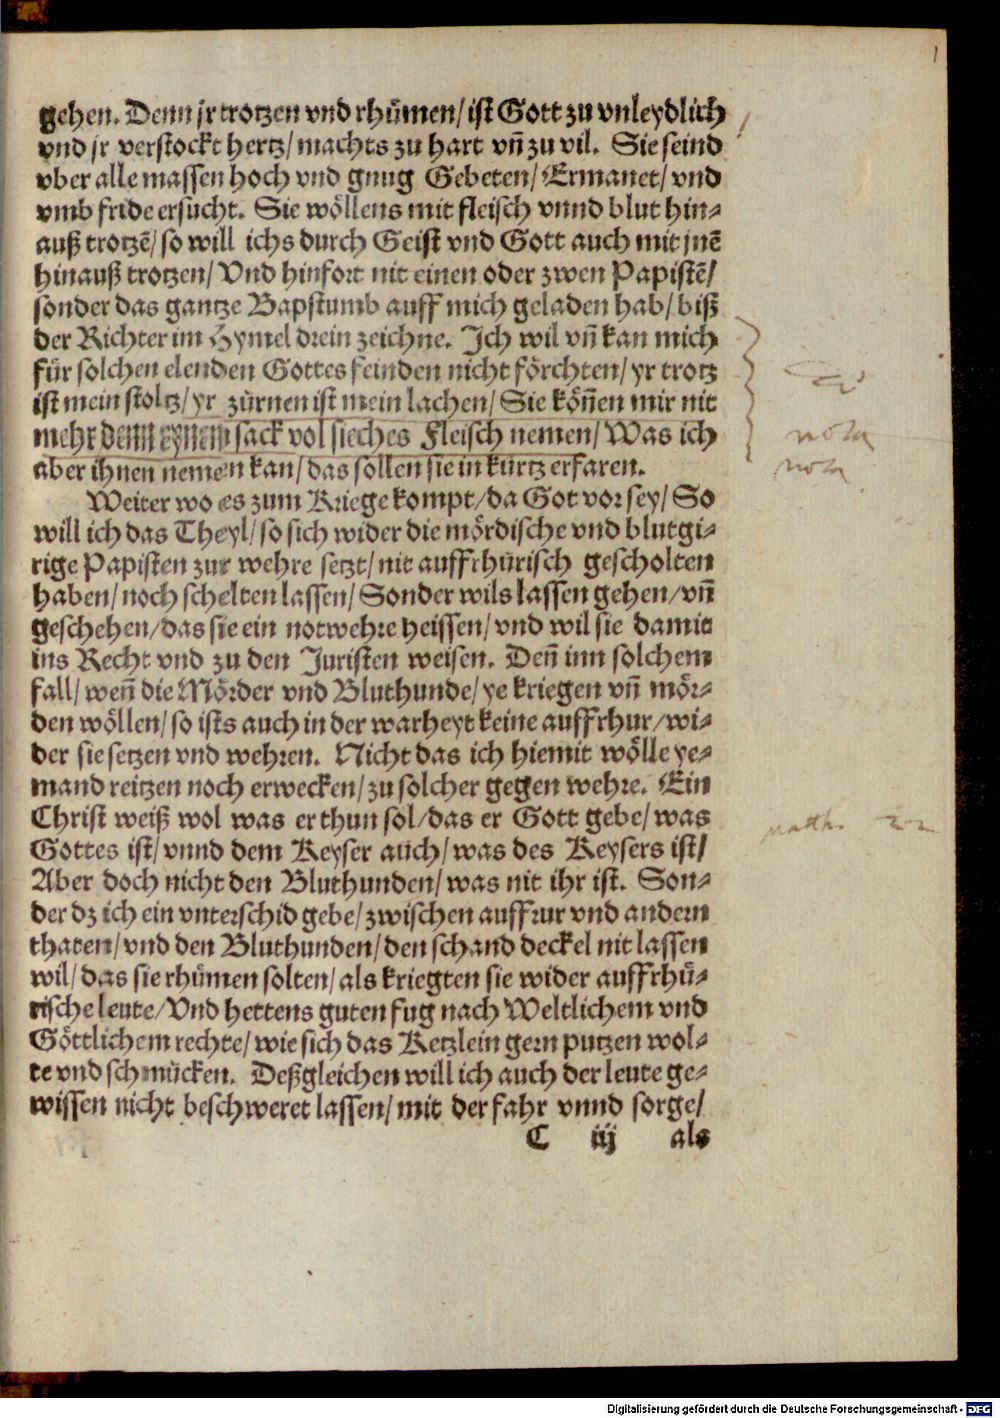 gehen. Denn jr trotzen vnd rhümen/ ist Gott zu vnleydlich
vnd jr verstockt hertz/ machts zu hart vñ zu vil. Sie seind
vber alle massen hoch vnd gnug Gebeten/ Ermanet/ vnd
vmb fride ersucht. Sie wöllens mit fleisch vnnd blut hin⸗
auß trotzē/ so will ichs durch Geist vnd Gott auch mit jnē
hinauß trotzen/ Vnd hinfort nit einen oder zwen Papistē/
sonder das gantze Bapstumb auff mich geladen hab/ biß
der Richter im Hymel drein zeichne. Ich wil vñ kan mich
für solchen elenden Gottes feinden nicht förchten/ yr trotz
ist mein stoltz/ yr zürnen ist mein lachen/ Sie köñen mir nit
mehr denn eynem sack vol sieches Fleisch nemen/ Was ich
aber ihnen nemen kan/ das sollen sie in kürtz erfaren.
Weiter wo es zum Kriege kompt/ da Got vor sey/ So
will ich das Theyl/ so sich wider die mördische vnd blutgi⸗
rige Papisten zur wehre setzt/ nit auffrhürisch gescholten
haben/ noch schelten lassen/ Sonder wils lassen gehen/ vñ
geschehen/ das sie ein notwehre heissen/ vnd wil sie damit
ins Recht vnd zu den Juristen weisen. Deñ inn solchem
fall/ weñ die Mörder vnd Bluthunde/ ye kriegen vñ mör⸗
den wöllen/ so ists auch in der warheyt keine auffrhur/ wi⸗
der sie setzen vnd wehren. Nicht das ich hiemit wölle ye⸗
mand reitzen noch erwecken/ zu solcher gegen wehre. Ein
Christ weiß wol was er thun sol/ das er Gott gebe/ was
Gottes ist/ vnnd dem Keyser auch/ was des Keysers ist/
Aber doch nicht den Bluthunden/ was nit ihr ist. Son⸗
der dz ich ein vnterschid gebe/ zwischen auffrur vnd andern
thaten/ vnd den Bluthunden/ den schand deckel nit lassen
wil/ das sie rhümen solten/ als kriegten sie wider auffrhü⸗
rische leute/ Vnd hettens guten fug nach Weltlichem vnd
Göttlichem rechte/ wie sich das Ketzlein gern putzen wol⸗
te vnd schmücken. Deßgleichen will ich auch der leute ge⸗
wissen nicht beschweret lassen/ mit der fahr vnnd sorge/
C iij als
nota
nota
matthei 22
Digitalisierung gefördert durch die Deutsche Forschungsgemeinschaft - DFG